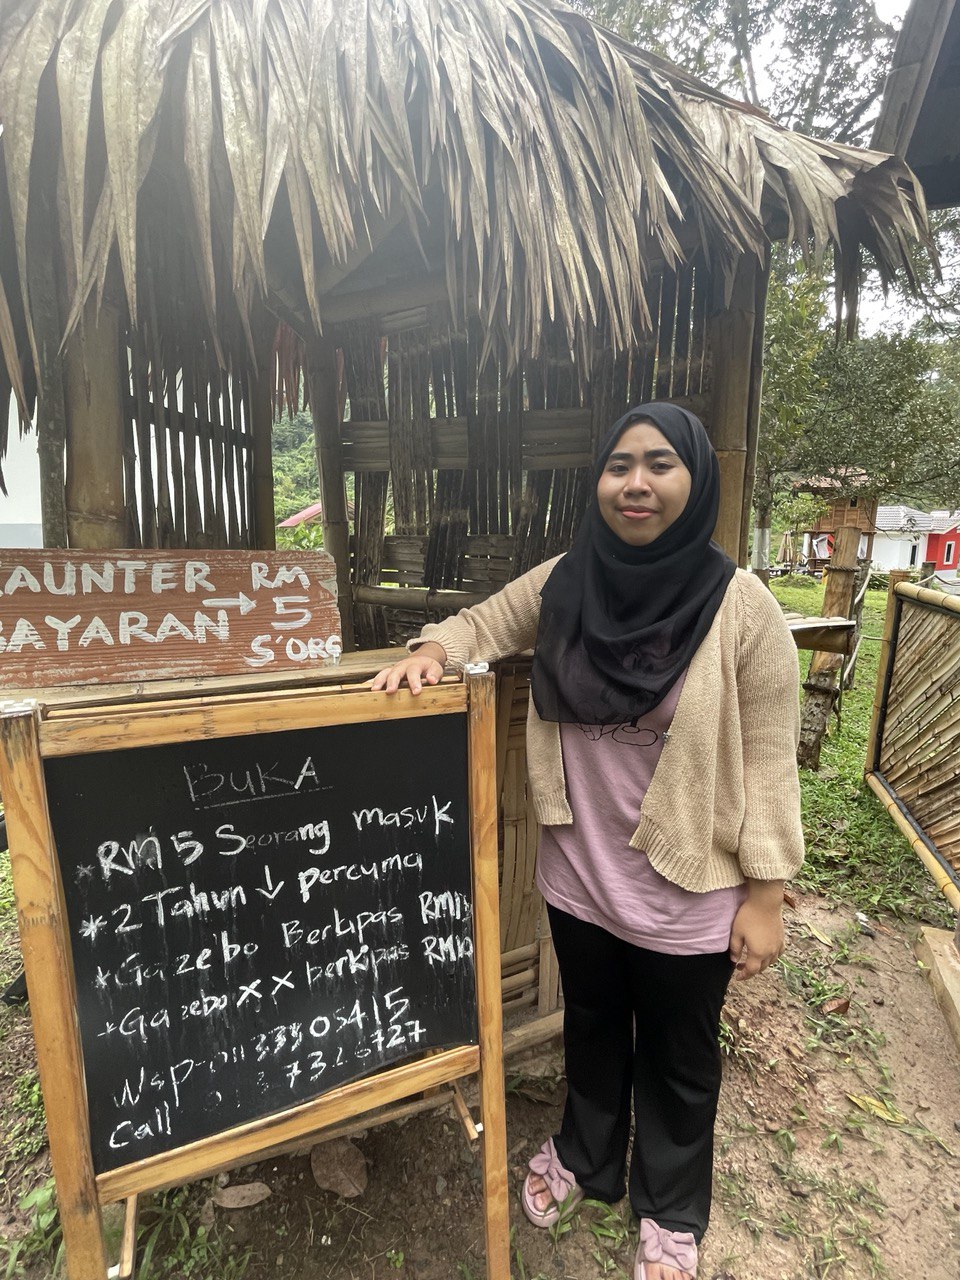 KAUNTER RM
BAYARAN → 5
S'ORG
BUKA
*RM 5 Seorang masuk
*2 Tahun ↓ percuma
*Gazebo Berkipas RM15
*Gazebo x x berkipas RM10
Wsp-011 33305415
Call 7326727